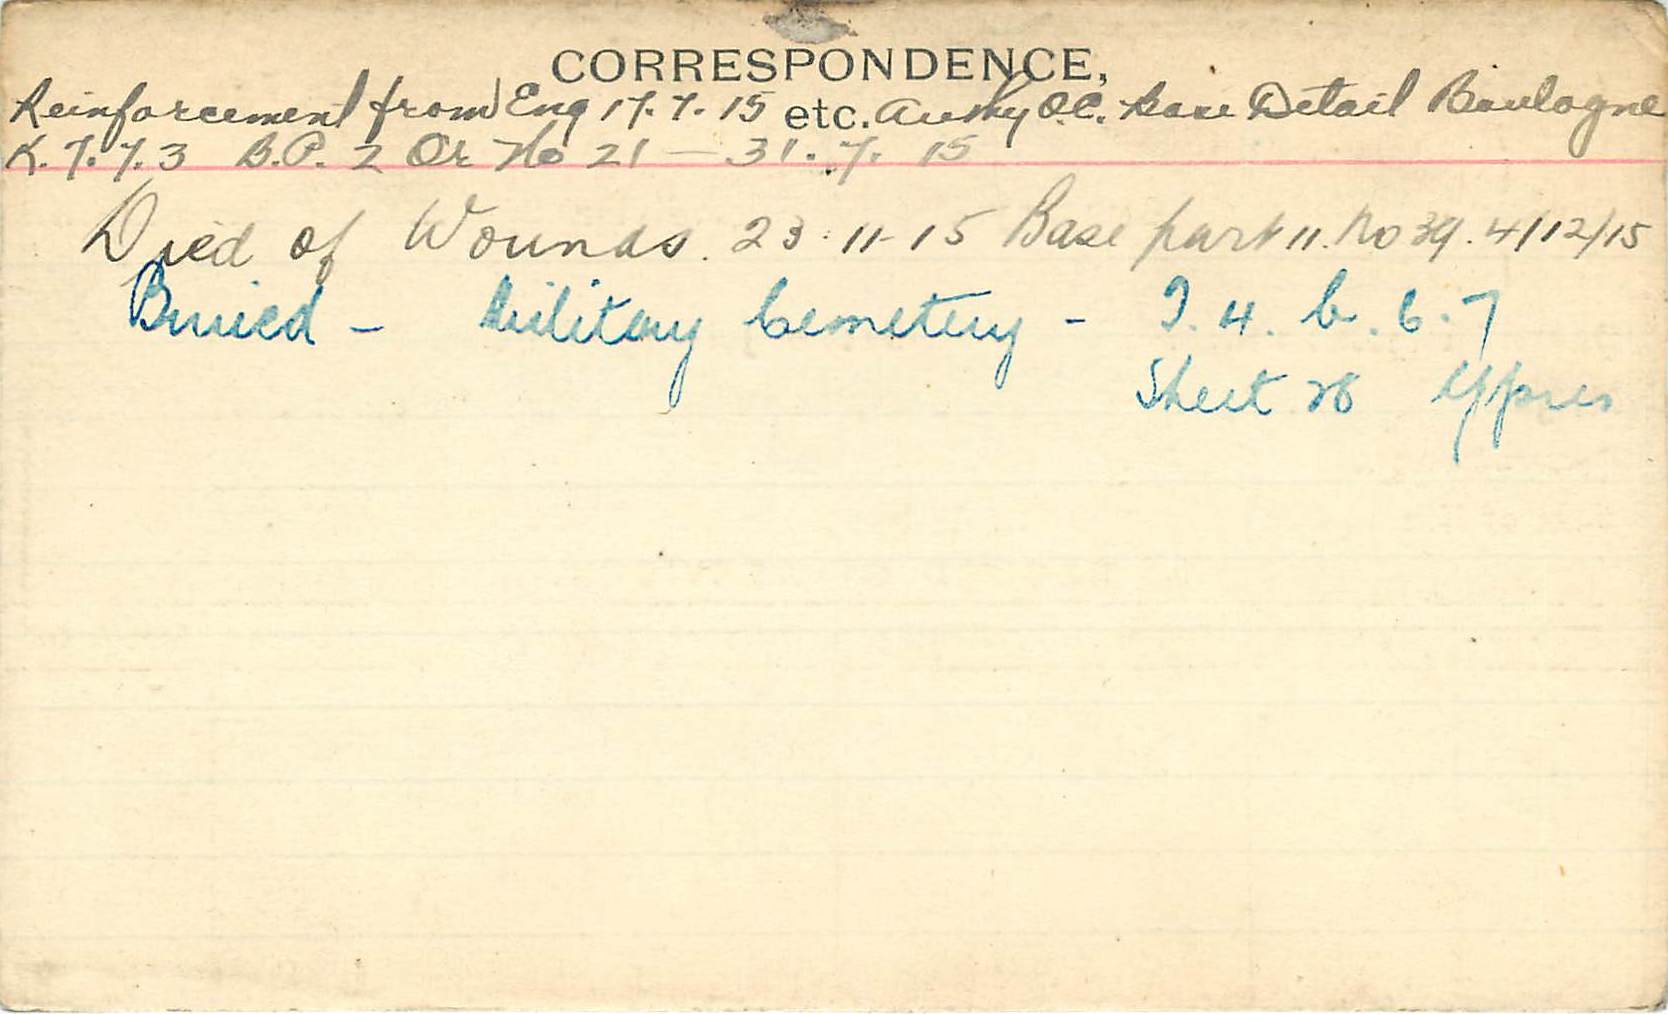 CORRESPONDENCE,
Reinforcement from Eng 17.7.15 etc. Authy O.C. Base Detail Boulogne
K.7.7.3 B.P. 2 Or No 21 — 31.7.15
Died of Wounds. 23-11-15 Base part 11. No 39. 4/12/15
Buried - Military Cemetery - T.4.b.6.7
Sheet 28 Ypres